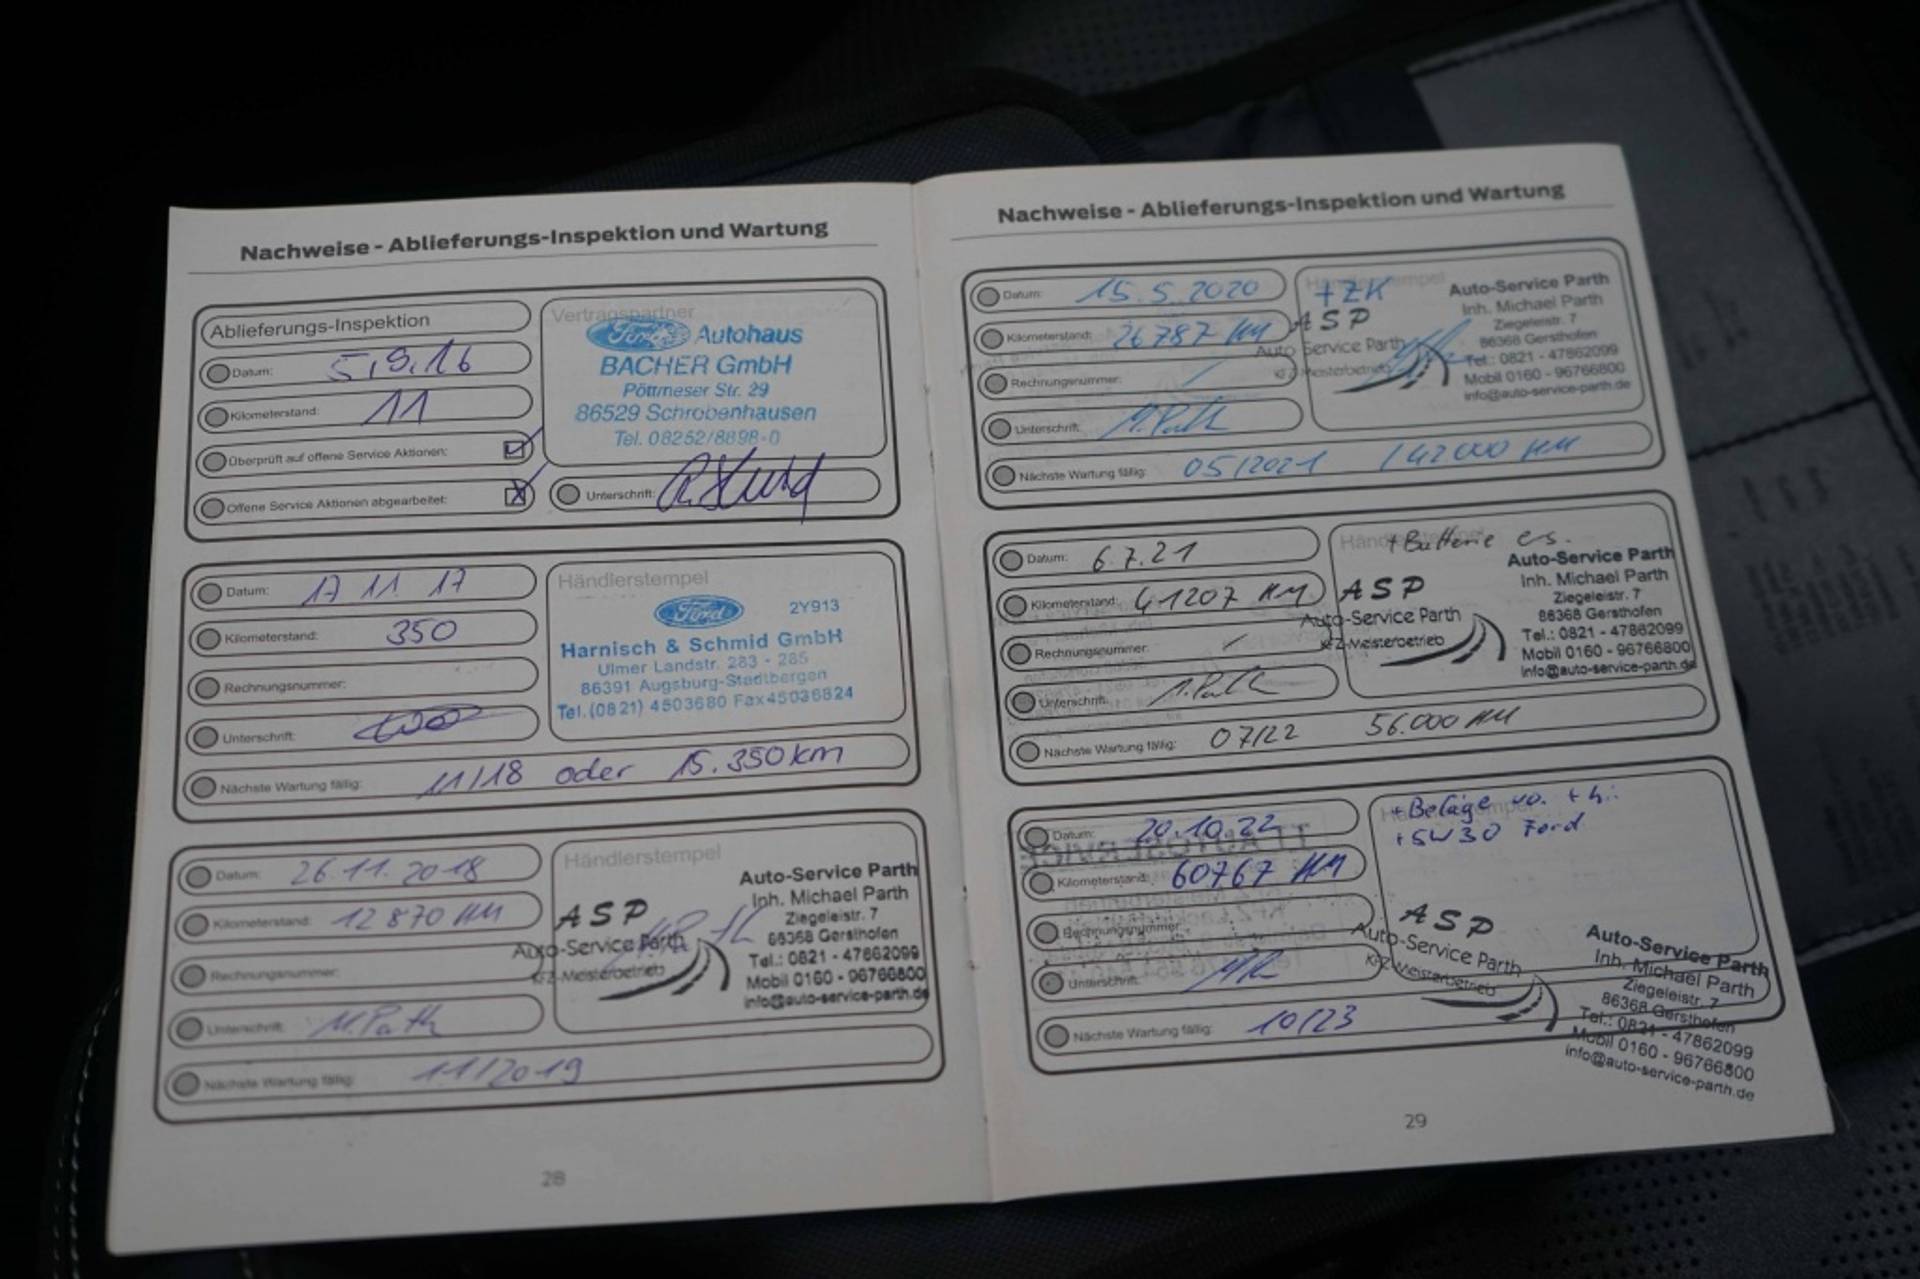 Nachweise - Ablieferungs-Inspektion und Wartung
Ablieferungs-Inspektion
Datum: 5,9,16
Kilometerstand: 11
Überprüft auf offene Service Aktionen:
Offene Service Aktionen abgearbeitet:
Vertragspartner
Ford Autohaus
BACHER GmbH
Pöttmeser Str. 29
86529 Schrobenhausen
Tel. 08252/8898-0
Unterschrift:
Datum: 17 11 17
Kilometerstand: 350
Rechnungsnummer:
Unterschrift:
Nächste Wartung fällig: 11/18 oder 15.350km
Händlerstempel
Ford 2Y913
Harnisch & Schmid GmbH
Ulmer Landstr. 283 - 285
86391 Augsburg-Stadtbergen
Tel.(0821) 4503680 Fax45036824
Datum: 26.11.2018
Kilometerstand: 12870 KM
Rechnungsnummer:
Unterschrift: M.Parth
Nächste Wartung fällig: 11/2019
Händlerstempel
ASP
Auto-Service Parth
KFZ-Meisterbetrieb
Auto-Service Parth
Inh. Michael Parth
Ziegeleistr. 7
86368 Gersthofen
Tel.: 0821 - 47862099
Mobil 0160 - 96766800
info@auto-service-parth.de
28
Nachweise - Ablieferungs-Inspektion und Wartung
Datum: 15.5.2020
Kilometerstand: 26787 KM
Rechnungsnummer: /
Unterschrift: M.Parth
Nächste Wartung fällig: 05/2021 /42000 KM
Händlerstempel
+ZK
ASP
Auto Service Parth
KFZ-Meisterbetrieb
Auto-Service Parth
Inh. Michael Parth
Ziegeleistr. 7
86368 Gersthofen
Tel.: 0821 - 47862099
Mobil 0160 - 96766800
info@auto-service-parth.de
Datum: 6.7.21
Kilometerstand: 41207 KM
Rechnungsnummer: /
Unterschrift: M.Parth
Nächste Wartung fällig: 07/22 56.000 KM
+Batterie ers.
ASP
Auto-Service Parth
KFZ-Meisterbetrieb
Auto-Service Parth
Inh. Michael Parth
Ziegeleistr. 7
86368 Gersthofen
Tel.: 0821 - 47862099
Mobil 0160 - 96766800
info@auto-service-parth.de
Datum: 20.10.22
Kilometerstand: 60767 KM
Rechnungsnummer:
Unterschrift:
Nächste Wartung fällig: 10/23
+Beläge vo. + hi.
+5W30 Ford
ASP
Auto-Service Parth
KFZ-Meisterbetrieb
Auto-Service Parth
Inh. Michael Parth
Ziegeleistr. 7
86368 Gersthofen
Tel.: 0821 - 47862099
Mobil 0160 - 96766800
info@auto-service-parth.de
29